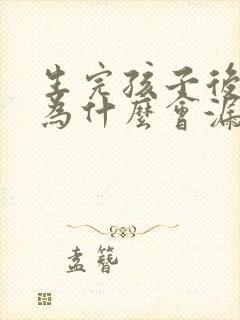 生完孩子後
為什麼會漏
孟簪